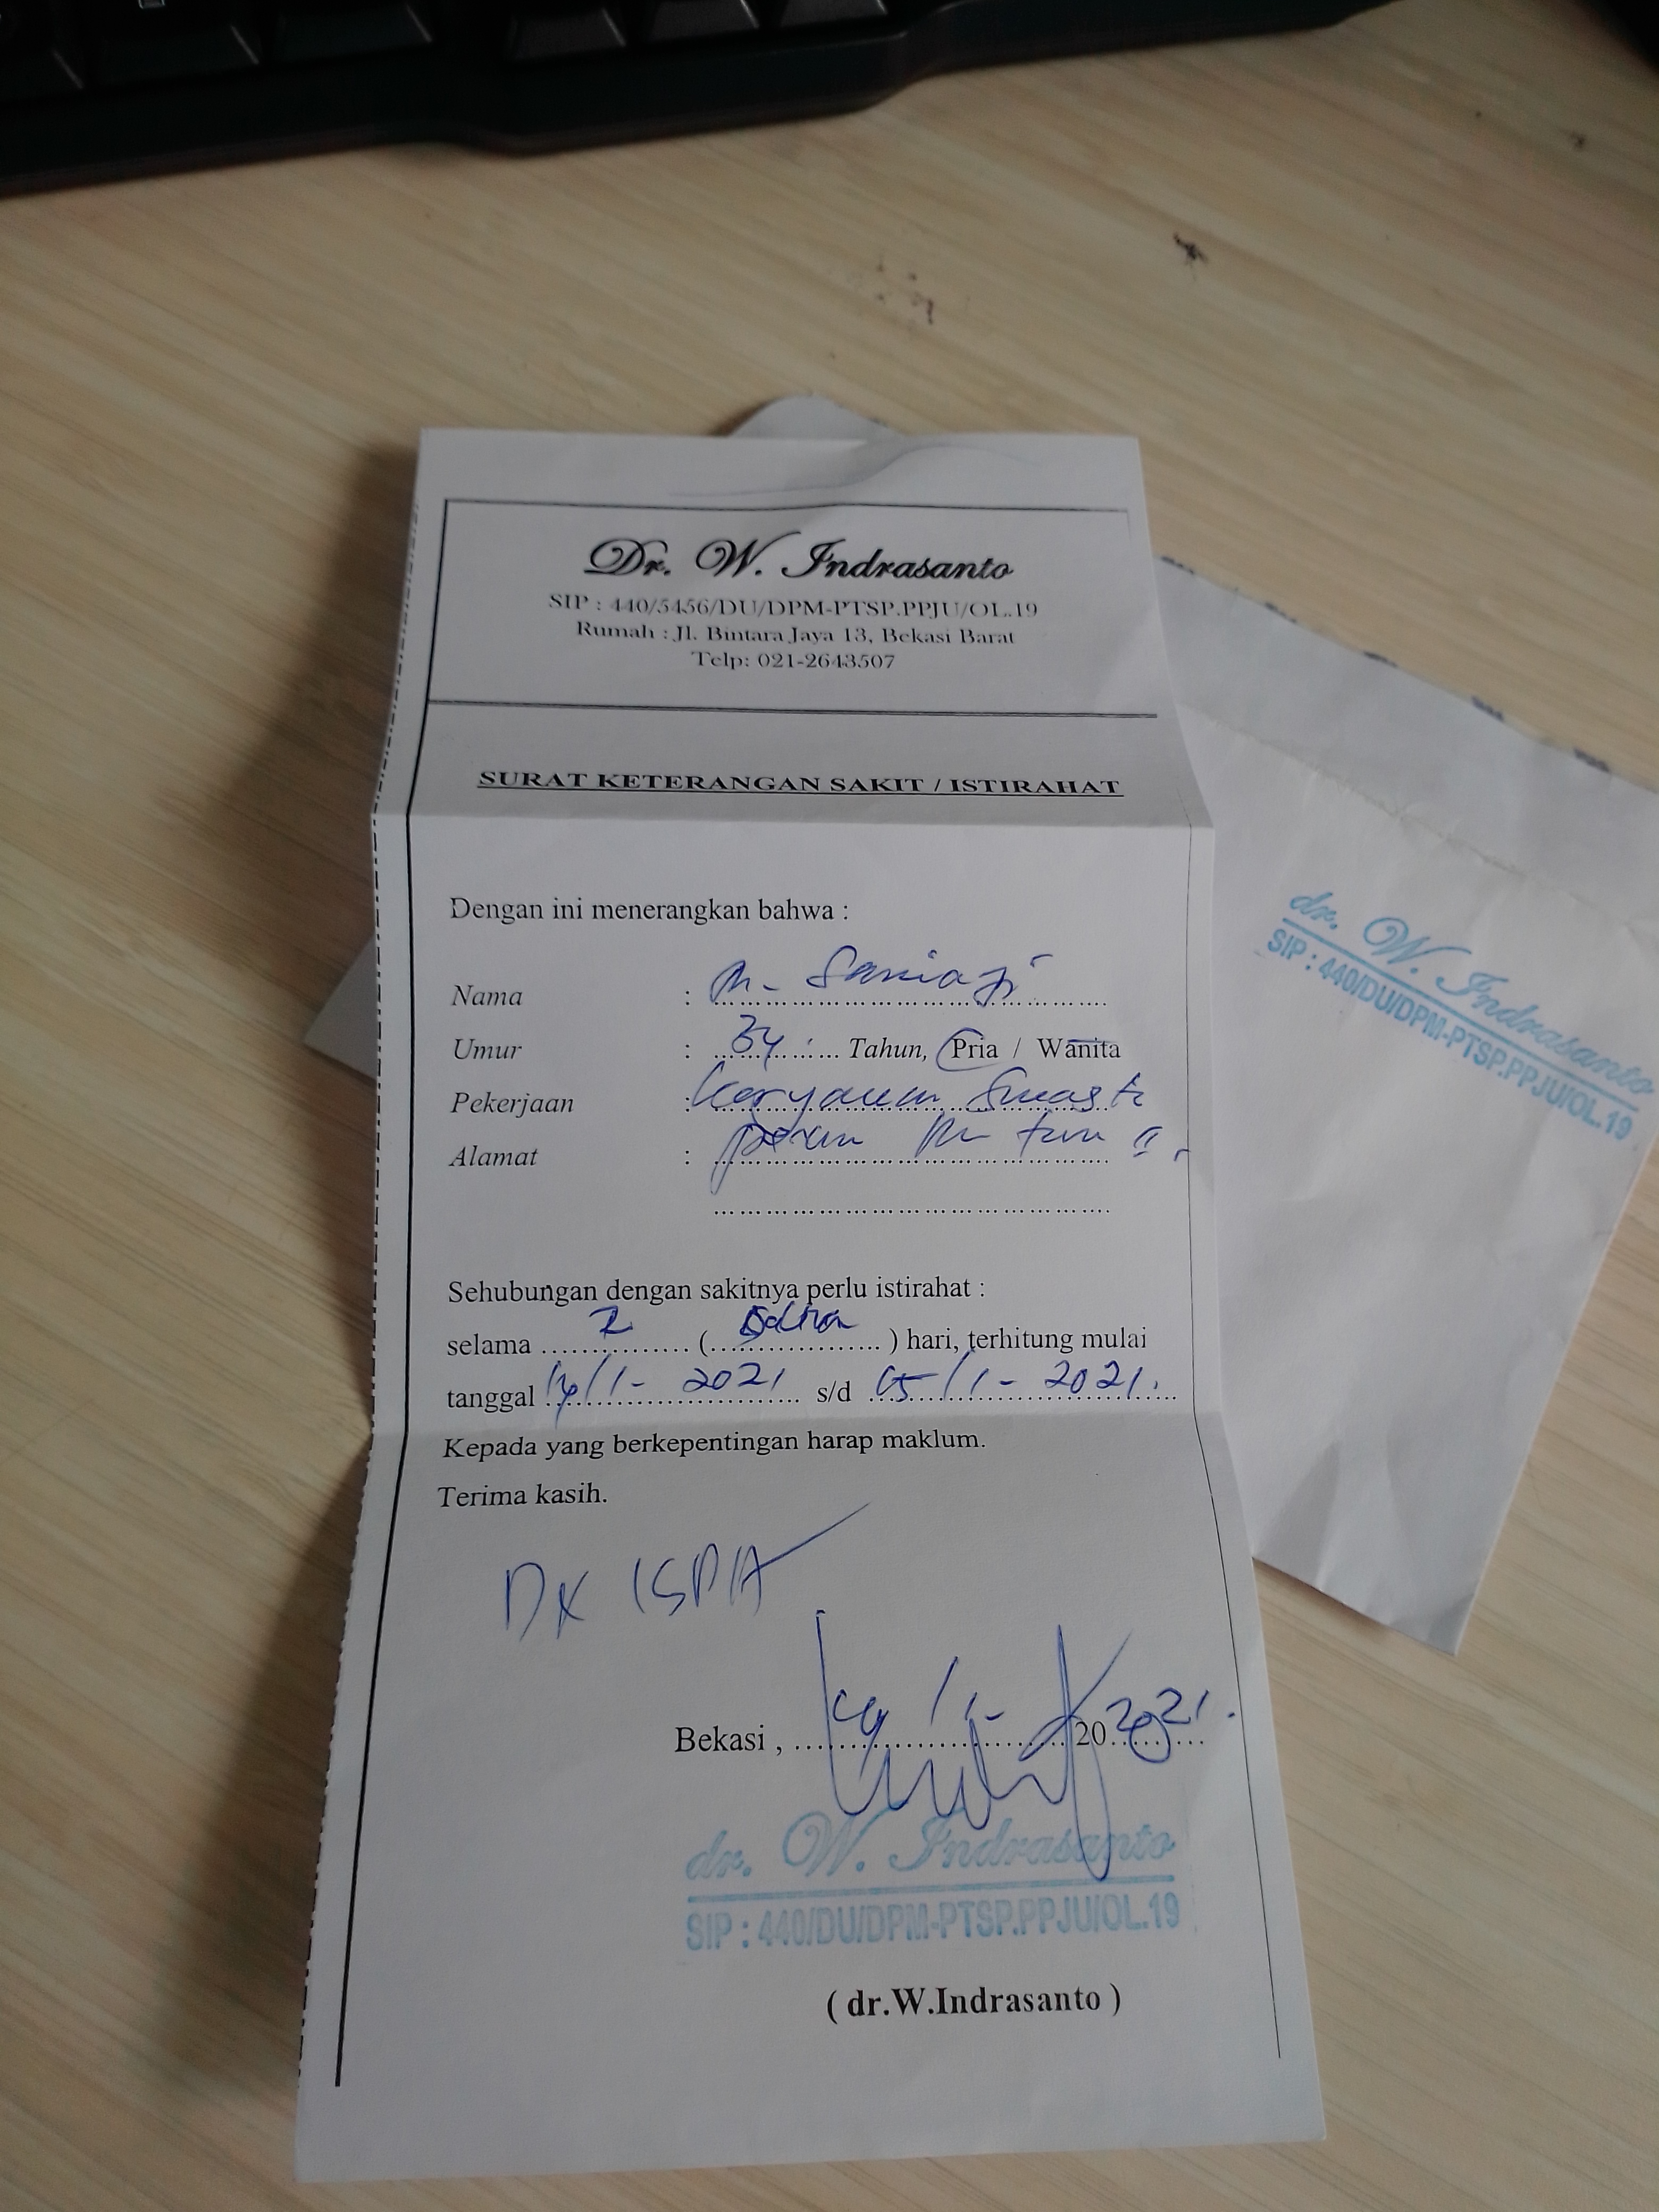 Dr. W. Indrasanto
SIP : 440/5456/DU/DPM-PTSP.PPJU/OL.19
Rumah : Jl. Bintara Jaya 13, Bekasi Barat
Telp: 021-2643507
SURAT KETERANGAN SAKIT / ISTIRAHAT
Dengan ini menerangkan bahwa :
Nama : M.
Umur : 34 Tahun, Pria / Wanita
Pekerjaan : Karyawan Swasta
Alamat :
Sehubungan dengan sakitnya perlu istirahat :
selama 2 ( ) hari, terhitung mulai
tanggal /1- 2021 s/d /1- 2021.
Kepada yang berkepentingan harap maklum.
Terima kasih.
Dx ISPA
Bekasi , 20 2021.
dr. W. Indrasanto
SIP : 440/DU/DPM-PTSP.PPJU/OL.19
( dr.W.Indrasanto )
dr. W. Indrasanto
SIP : 440/DU/DPM-PTSP.PPJU/OL.19